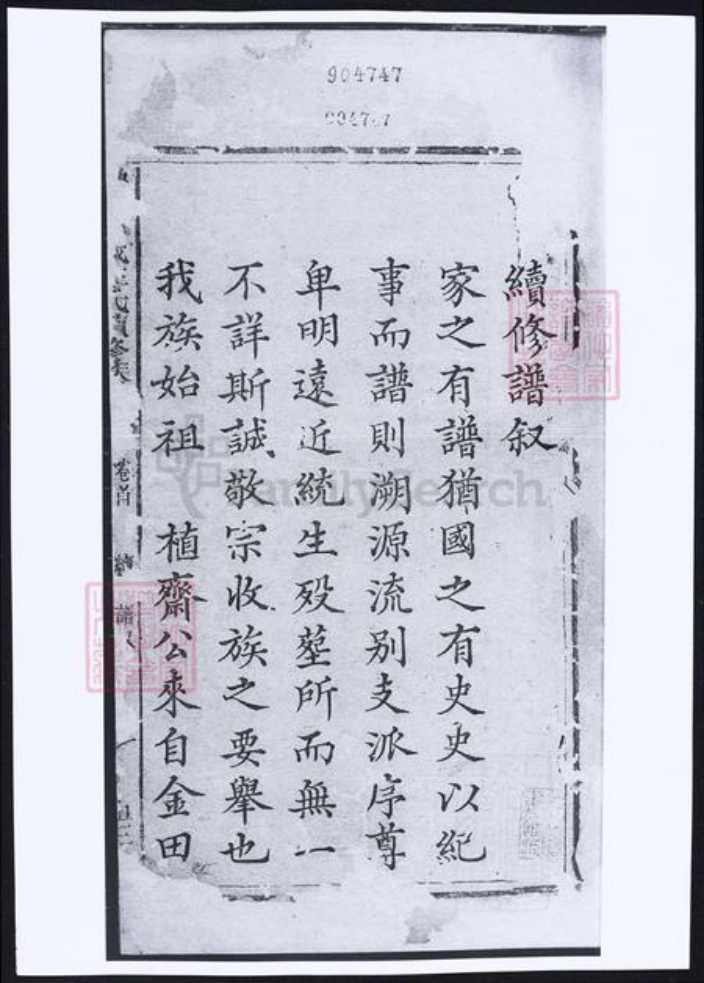 904747
續修譜叙
家之有譜猶國之有史史以紀
事而譜則溯源流別支派序尊
卑明遠近統生殁塋所而無一
不詳斯誠敬宗收族之要舉也
我族始祖 植齋公來自金田
卷首
FamilySearch